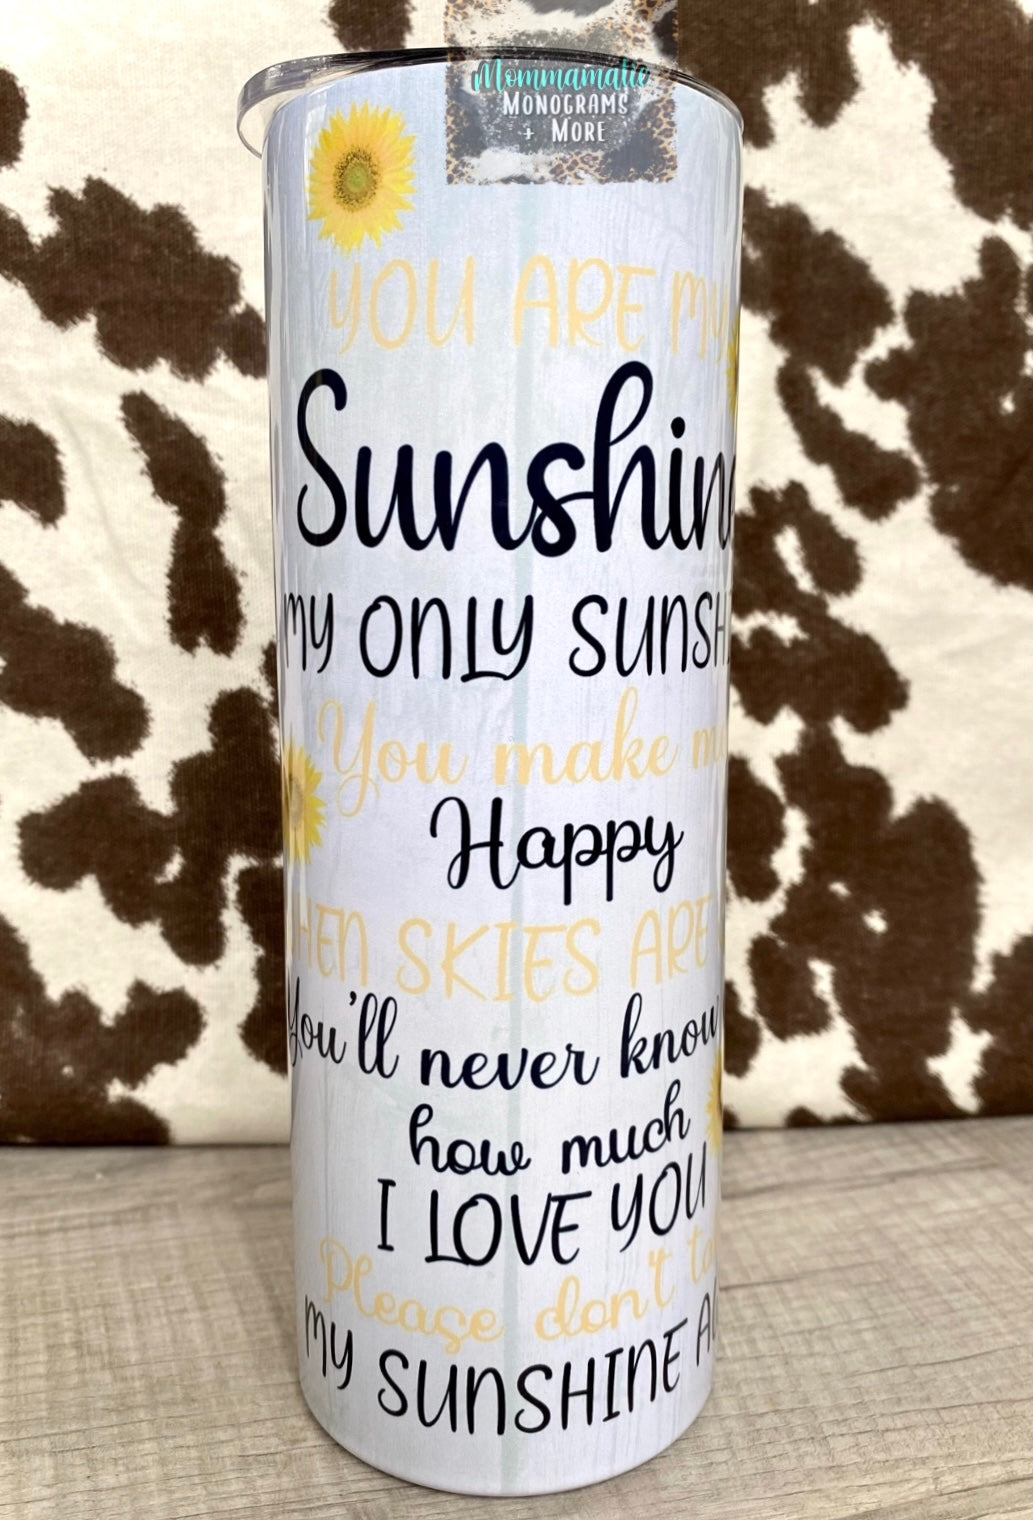 Mommamatie
MONOGRAMS
+ MORE
YOU ARE MY
Sunshin
MY ONLY SUNSH
You make m
Happy
HEN SKIES ARE
You'll never know
how much
I LOVE YOU
Please don't ta
MY SUNSHINE A